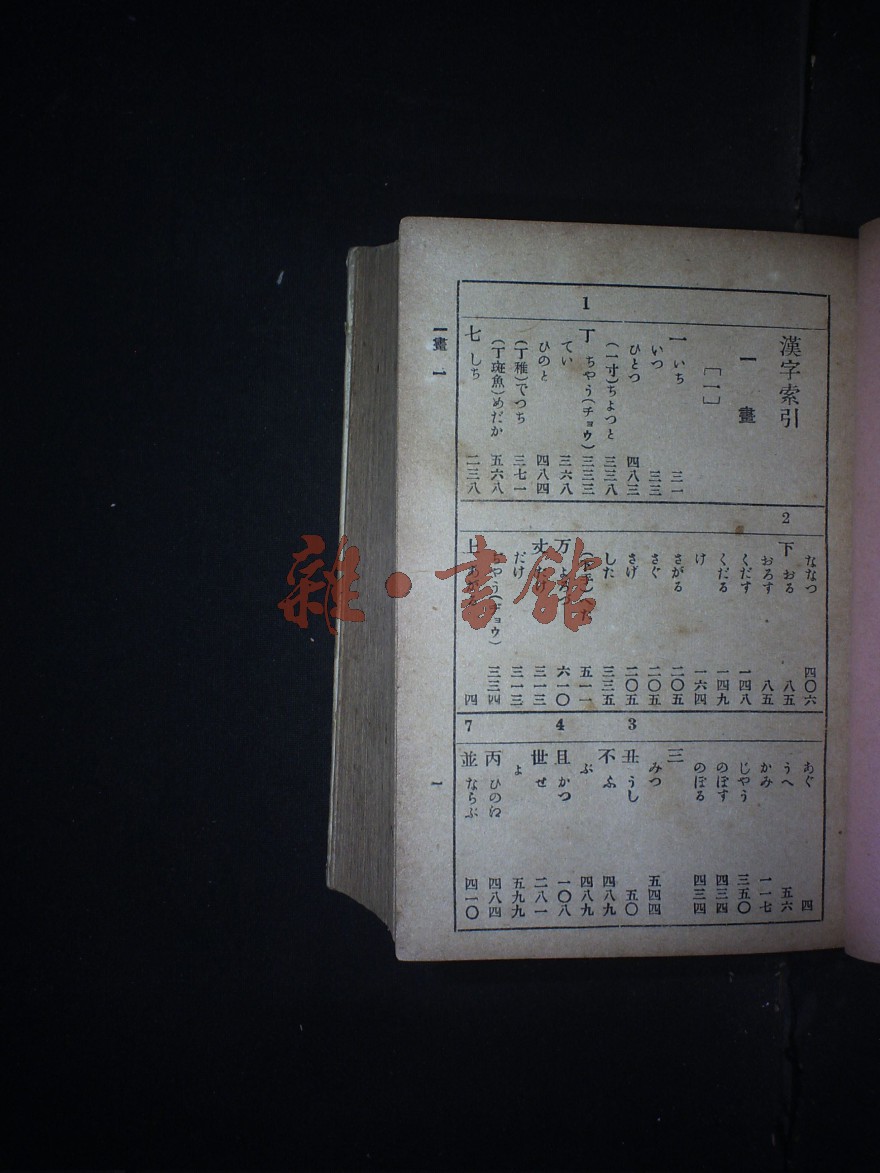 漢字索引
一畫
[一]
一 いち 三一
いつ 三三
ひとつ 四八三
(一寸)ちよつと 三三八
1
丁 ちやう(チョウ) 三三三
てい 三六八
ひのと 四八四
(丁稚)でつち 三七一
(丁斑魚)めだか 五六八
七 しち 二三八
ななつ 四〇六
2
下 おる 八五
おろす 八五
くだす 一四八
くだる 一四九
け 一六四
さがる 二〇五
さぐ 二〇五
さげ 二〇五
した 三三五
五一一
万 六一〇
丈 三一三
だけ 三一三
ぢやう(ヂョウ) 三三四
上 四
あぐ 四
うへ 五六
かみ 一一七
じやう 三五〇
のぼす 四三四
のぼる 四三四
三
みつ 五四四
3
丑 うし 五〇
不 ふ 四八九
ぶ 四八九
4
且 かつ 一〇八
世 せ 二八一
よ 五九九
丙 ひのえ 四八四
7
並 ならぶ 四一〇
一畫 一
一
雜·書館